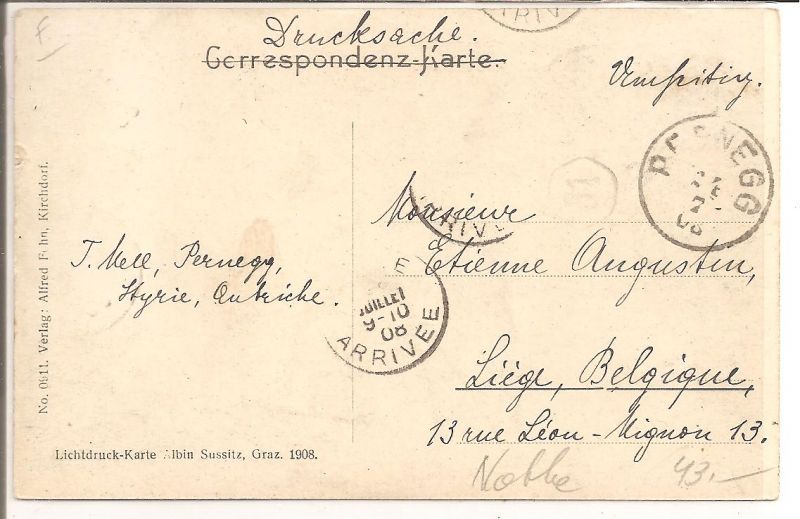 Drucksache.
Correspondenz-Karte.
PERNEGG
08
ARRIVÉE
Monsieur
Etienne Augustin,
T. Mell, Pernegg,
Styrie, Autriche.
JUILLET
9-10
08
ARRIVEE
Liége, Belgique,
13 rue Léon-Mignon 13.
No. 0611. Verlag: Alfred Kirchdorf.
Lichtdruck-Karte Albin Sussitz, Graz. 1908.
43.-